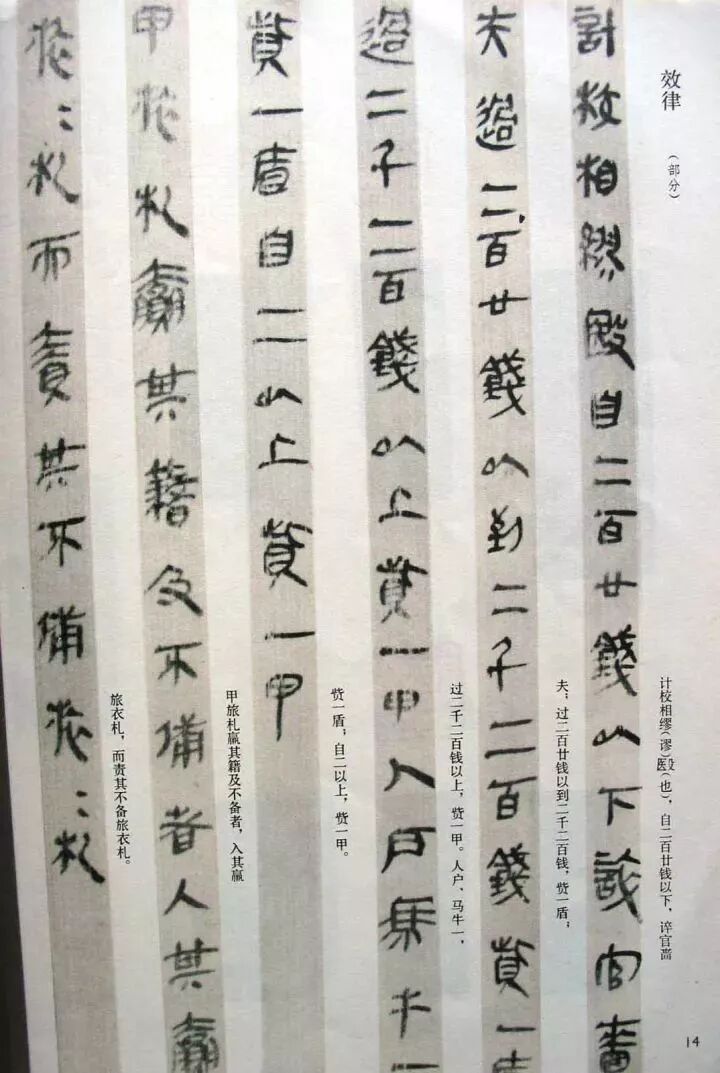 效律
（部分）
计校相缪（谬）殹（也），自二百廿钱以下，谇官啬
計校相繆殹自二百廿錢以下誶官嗇
夫；过二百廿钱以到二千二百钱，赀一盾；
夫過二百廿錢以到二千二百錢貲一盾
过二千二百钱以上，赀一甲。人户、马牛一，
過二千二百錢以上貲一甲人戶馬牛一
赀一盾；自二以上，赀一甲。
貲一盾自二以上貲一甲
甲旅札赢其籍及不备者，入其赢
甲旅札贏其籍及不備者入其贏
旅衣札，而责其不备旅衣札。
旅〻札而責其不備旅〻札
14